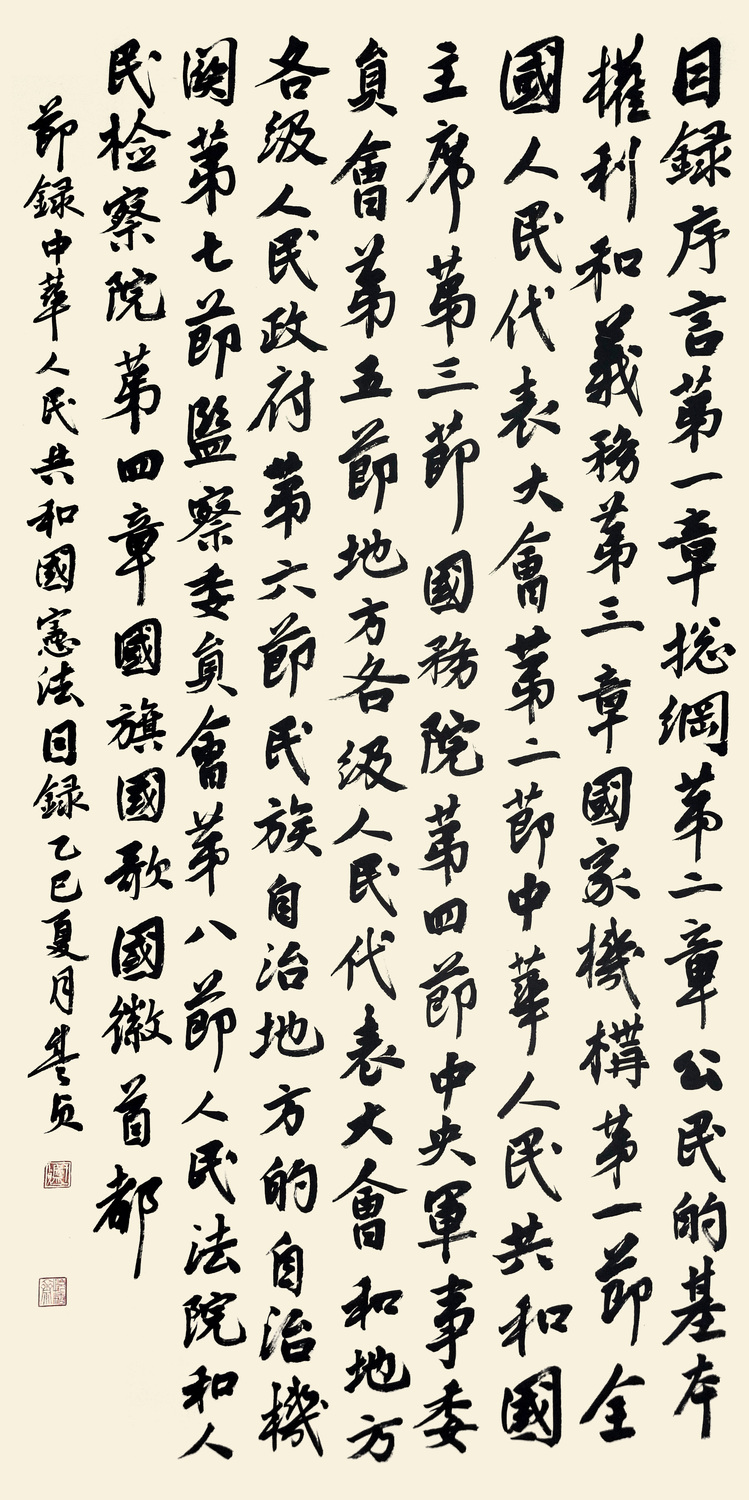 目録序言第一章総綱第二章公民的基本
權利和義務第三章國家機構第一節全
國人民代表大會第二節中華人民共和國
主席第三節國務院第四節中央軍事委
員會第五節地方各級人民代表大會和地方
各級人民政府第六節民族自治地方的自治機
関第七節監察委員會第八節人民法院和人
民檢察院第四章國旗國歌國徽首都
節録中華人民共和國憲法目録乙巳夏月